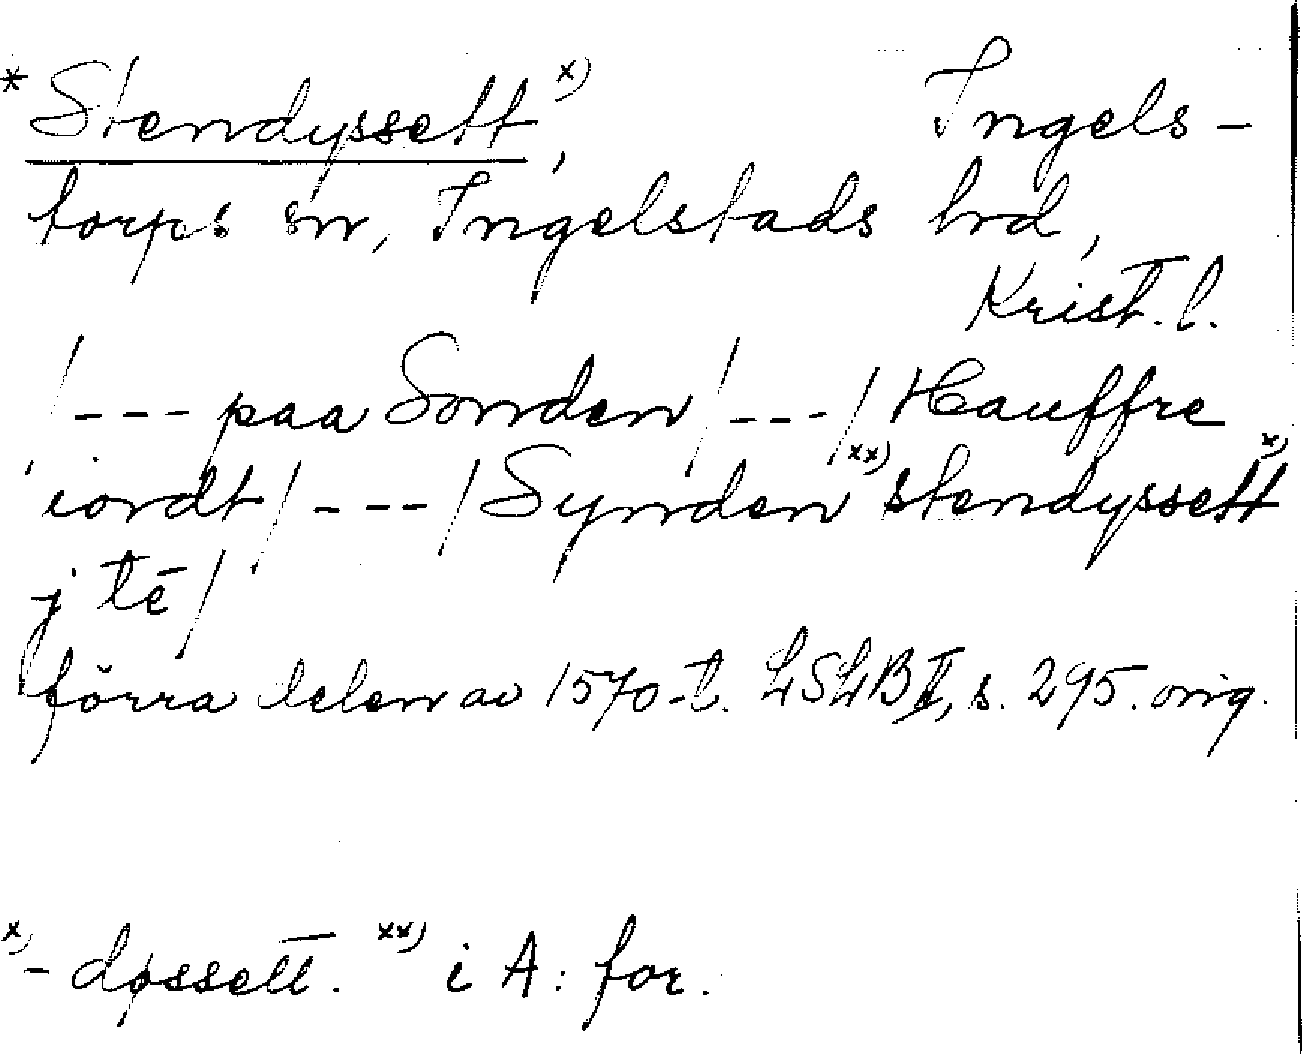 *Stendyssett x), Ingels-
torps sn, Ingelstads hrd,
Krist. l.
/--- paa Sonnden /---/ Hauffre
iordt /---/ Synnden xx) stendyssett x)
j tē /
förra delen av 1570-t. LSLB II, s. 295. orig.
x) - døssett. xx) i A: for.